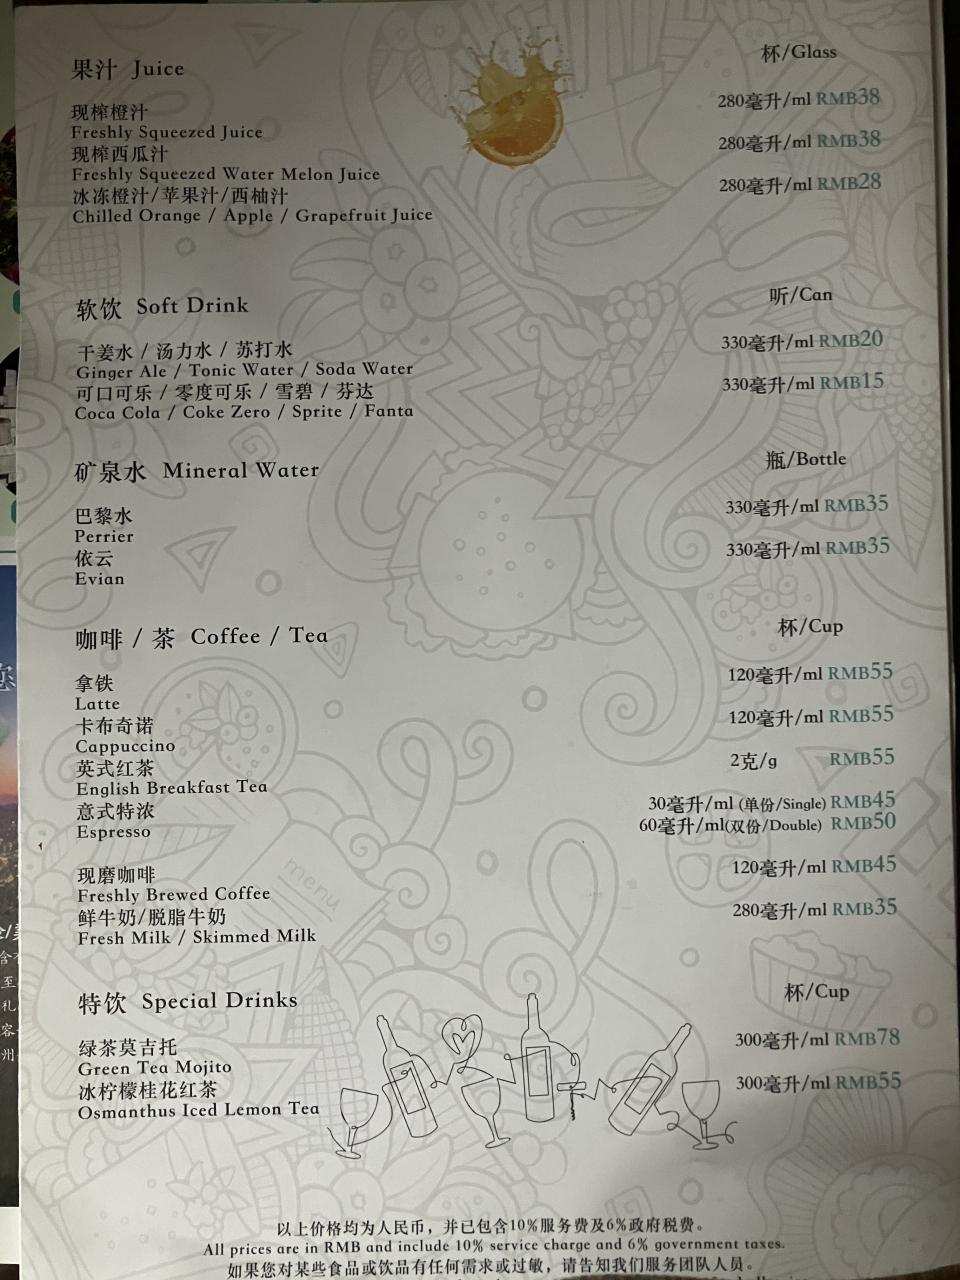 果汁 Juice 杯/Glass
现榨橙汁 280毫升/ml RMB38
Freshly Squeezed Juice
现榨西瓜汁 280毫升/ml RMB38
Freshly Squeezed Water Melon Juice
冰冻橙汁/苹果汁/西柚汁 280毫升/ml RMB28
Chilled Orange / Apple / Grapefruit Juice
软饮 Soft Drink 听/Can
干姜水 / 汤力水 / 苏打水 330毫升/ml RMB20
Ginger Ale / Tonic Water / Soda Water
可口可乐 / 零度可乐 / 雪碧 / 芬达 330毫升/ml RMB15
Coca Cola / Coke Zero / Sprite / Fanta
矿泉水 Mineral Water 瓶/Bottle
巴黎水 330毫升/ml RMB35
Perrier
依云 330毫升/ml RMB35
Evian
咖啡 / 茶 Coffee / Tea 杯/Cup
拿铁 120毫升/ml RMB55
Latte
卡布奇诺 120毫升/ml RMB55
Cappuccino
英式红茶 2克/g RMB55
English Breakfast Tea
意式特浓 30毫升/ml (单份/Single) RMB45
Espresso 60毫升/ml(双份/Double) RMB50
现磨咖啡 120毫升/ml RMB45
Freshly Brewed Coffee
menu
鲜牛奶/脱脂牛奶 280毫升/ml RMB35
Fresh Milk / Skimmed Milk
特饮 Special Drinks 杯/Cup
绿茶莫吉托 300毫升/ml RMB78
Green Tea Mojito
冰柠檬桂花红茶 300毫升/ml RMB55
Osmanthus Iced Lemon Tea
以上价格均为人民币，并已包含10%服务费及6%政府税费。
All prices are in RMB and include 10% service charge and 6% government taxes.
如果您对某些食品或饮品有任何需求或过敏，请告知我们服务团队人员。